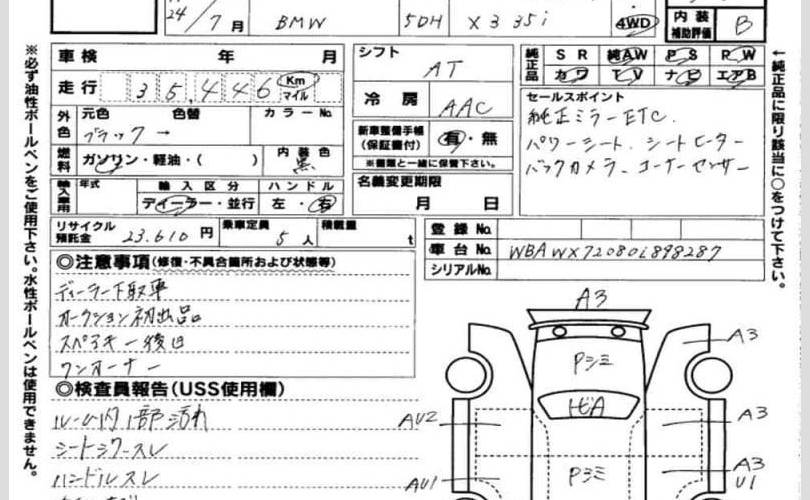 24/7月 BMW 5DH X3 35i 4WD 内装補助評価 B
車検 年 月
走行 35,446 Km マイル
外色 元色 色替 カラーNo.
ブラック →
燃料 ガソリン・軽油・( ) 内装色 黒
輸入車用 年式 輸入区分 ハンドル
ディーラー・並行 左・右
リサイクル預託金 23.610円 乗車定員 5人 積載量 t
シフト AT
冷房 AAC
新車整備手帳(保証書付) 有・無
※書類と一緒に保管下さい。
名義変更期限
月 日
純正品 SR 純AW PS PW
カワ TV ナビ エアB
セールスポイント
純正ミラーETC.
パワーシート、シートヒーター
バックカメラ、コーナーセンサー
登録No.
車台No. WBAWX72080L898287
シリアルNo.
◎注意事項(修復・不具合箇所および状態等)
ディーラー下取車
オークション初出品
スペアキー後日
ワンオーナー
◎検査員報告(USS使用欄)
ルーム内1部汚れ
シートシワ・スレ
ハンドルスレ
※必ず油性ボールペンをご使用下さい。水性ボールペンは使用できません。
←純正品に限り該当に○をつけて下さい。
A3
A3
Pシミ
AU2
A3
Pシミ
A3
AU1
U1